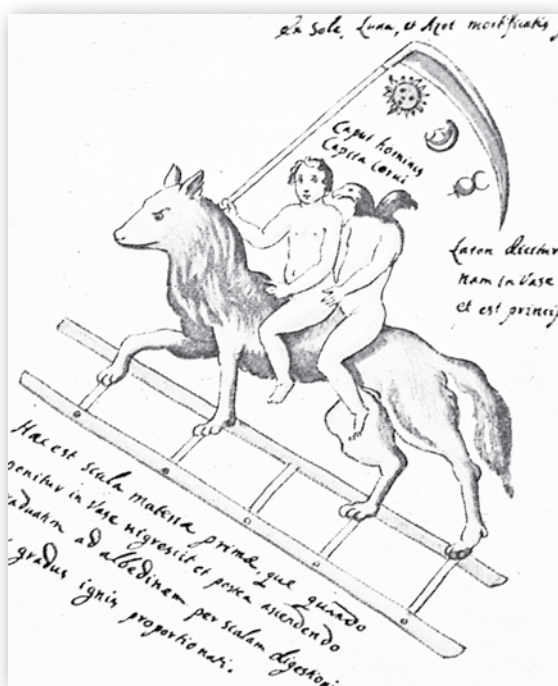 In Sole, Luna, et Azot mortificatis
Caput hominis
Capita corui
Laton dicitur
nam in Vase
et est princi
Haec est scala materia prima, que quando
ponitur in Vase nigrescit et postea ascendendo
graduatim ad albedinem per scalam digestioni
gradus ignis proportionati.